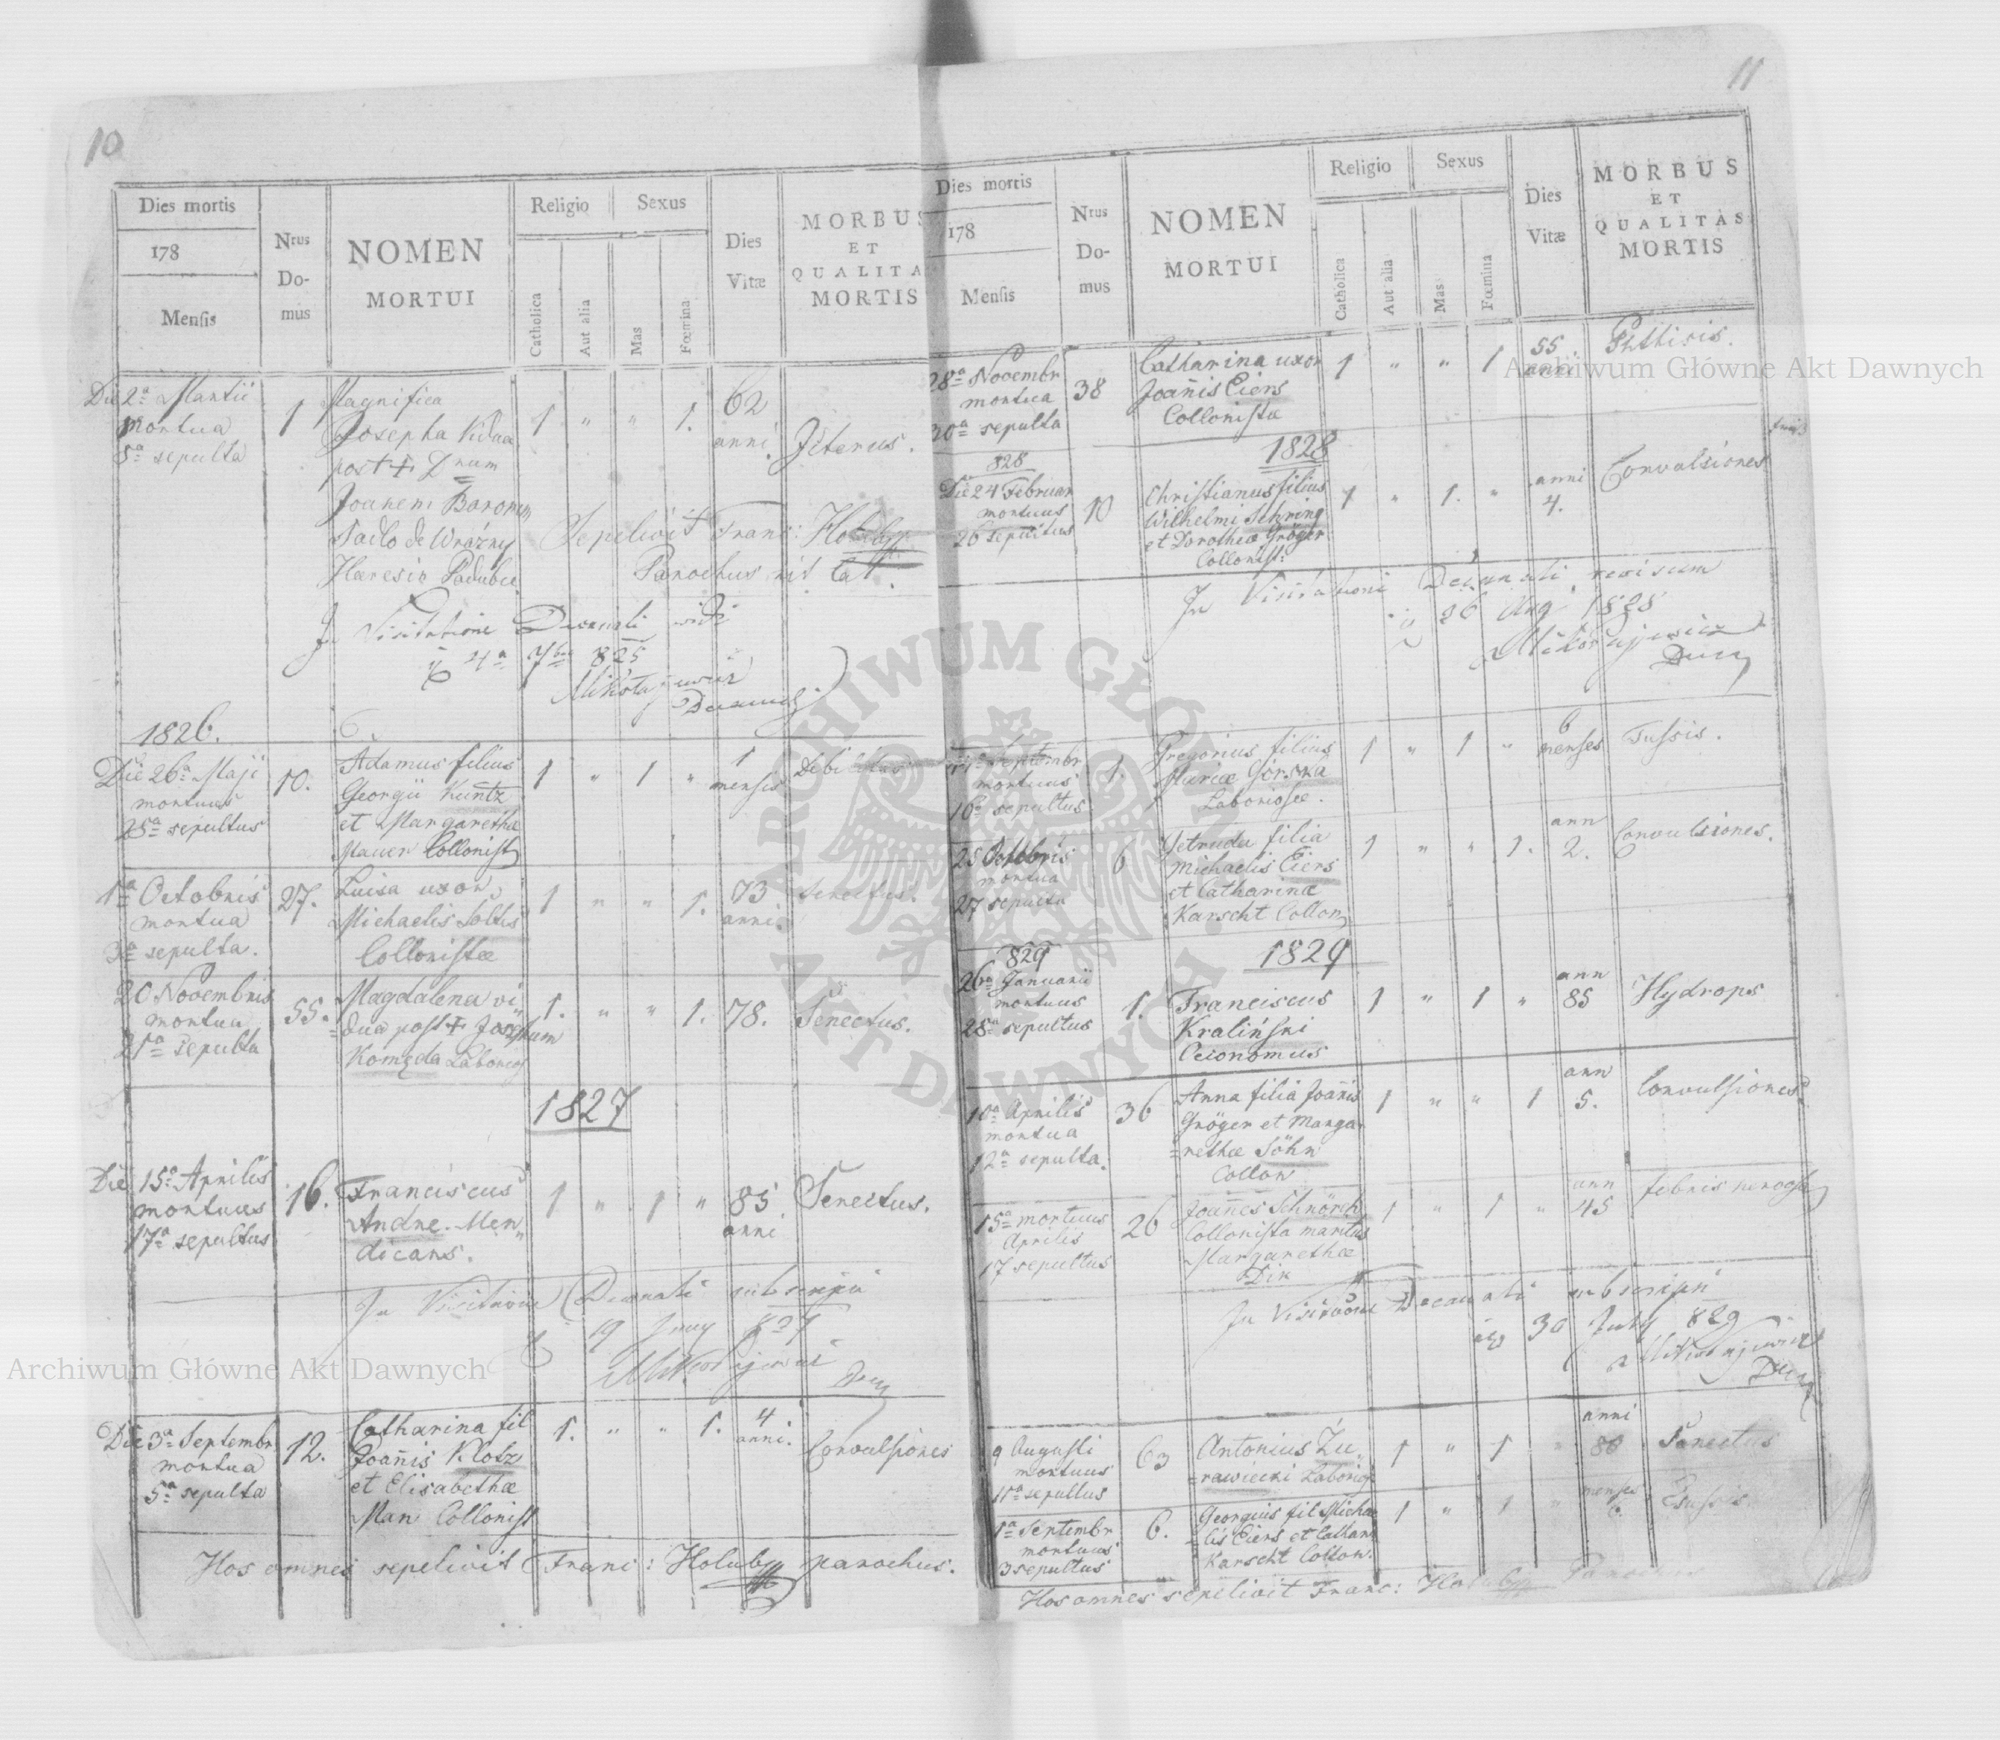 10
Dies mortis
178
Mensis
Nrus
Do-
mus
NOMEN
MORTUI
Religio
Sexus
Catholica
Aut alia
Mas
Fœmina
Dies
Vitæ
MORBUS
ET
QUALITA
MORTIS
Die 2ª Martii
mortua
5ª sepulta
1
Magnifica
Josepha Vidua
post ✝ Dnum
Joanem Baronem
Sadło de Wrażny
1 " " 1.
62
anni.
Jcterus.
Sepelivit Franc: Holuby
Parochus rit lat.
In Visitatione Decanali vidi
4ª 7bris 825
Mikołajewicz
1826.
Die 26ª Maji
mortuus
28ª sepultus
10.
Adamus filius
Georgii Kuntz
et Margaretha
Mauer Collonist
1 " 1 "
1
mensis
Debilitas
1ª Octobris
mortua
3ª sepulta.
27.
Luisa uxor
Michaelis Soltis
Collonistæ
1 " " 1.
73
anni.
Senectus.
20 Novembris
mortua
21ª sepulta
55.
Magdalena vi
dua post ✝ Josephum
Komęda Laborios
1. " " 1.
78.
Senectus.
1827
Die 15ª Aprilis
mortuus
17ª sepultus
16.
Franciscus
Andre. Men
dicans.
1 " 1 "
85
anni
Senectus.
In Visitatione Decanali subscripsi
19 827
Die 3ª Septembr
mortua
5ª sepulta
12.
Catharina fil
Joañis Klotz
et Elisabethæ
Man Collonist
1. " " 1.
4
anni.
Convulsiones
Hos omnes sepelivit Franc: Holuby parochus.
11
Dies mortis
178
Mensis
Nrus
Do-
mus
NOMEN
MORTUI
Religio
Sexus
Catholica
Aut alia
Mas
Fœmina
Dies
Vitæ
MORBUS
ET
QUALITAS
MORTIS
28ª Novembr
mortua
30ª sepulta
38
Catharina uxor
Joañis Eiers
Collonistæ
1 " " 1
55
anni
Phtisis.
1828
828
Die 24 Februar
mortuus
26 sepultus
10
Christianus filius
Wilhelmi Sehring
et Dorotheæ Gröger
Collonist:
1 " 1. "
anni
4.
Convulsiones
In Visitationi Decanali revisum
26 Aug 1828
Mikołajewicz
Septembr
mortuus
sepultus
1.
Gregorius filius
Mariæ Górska
Laboriosæ.
1 " 1 "
6
menses
Tussis.
25 Octobris
mortua
27 sepulta
6
Getruda filia
Michaelis Eiers
et Catharinæ
Karscht Collon
1 " " 1.
ann
2.
Convulsiones.
829
1829
26ª Januarii
mortuus
28ª sepultus
1.
Franciscus
Kraliński
Oeconomus
1 " 1 "
ann
85
Hydrops
10ª Aprilis
mortua
12ª sepulta.
36
Anna filia Joañis
Gröger et Marga
=rethæ Söhn
Collon
1 " " 1
ann
5.
Convulsiones
15ª mortuus
Aprilis
17 sepultus
26
Joañes Schnörch
Collonista maritus
Margarethæ
Dix
1 " 1 "
ann
45
febris nervosa
In Visitatione Decanali subscripsi
30 July 829
Mikołajewicz
9 Augusti
mortuus
11ª sepultus
63
Antonius Żu
=rawiecki Laborios
1 " 1 "
anni
80
Senectus
1ª Septembr
mortuus
3 sepultus
6.
Georgius fil Micha
=lis Eiers et Cathar
Karscht Collon.
1 " 1 "
menses
6.
Tussis
Hos omnes sepelivit Franc: Holuby Parochus
Archiwum Główne Akt Dawnych
Archiwum Główne Akt Dawnych
ARCHIWUM GŁÓWNE AKT DAWNYCH